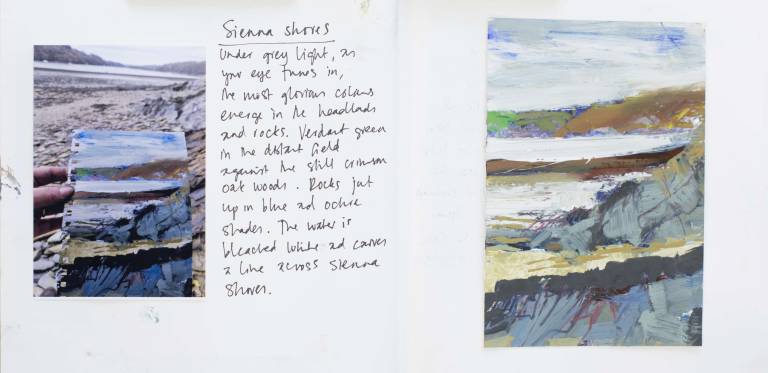 Sienna shores
Under grey light, as
your eye tunes in,
the most glorious colours
emerge in the headlands
and rocks. Verdant green
in the distant field
against the still crimson
oak woods. Rocks jut
up in blue and ochre
shades. The water is
bleached white and carves
a line across sienna
shores.